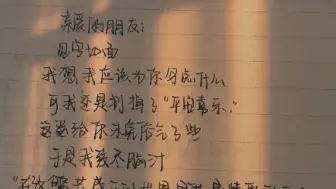 亲爱的朋友：
见字如面
我想我应该为你写点什么
可我总是划掉了“平安喜乐”
这送给你未免俗气了些
于是我绞尽脑汁